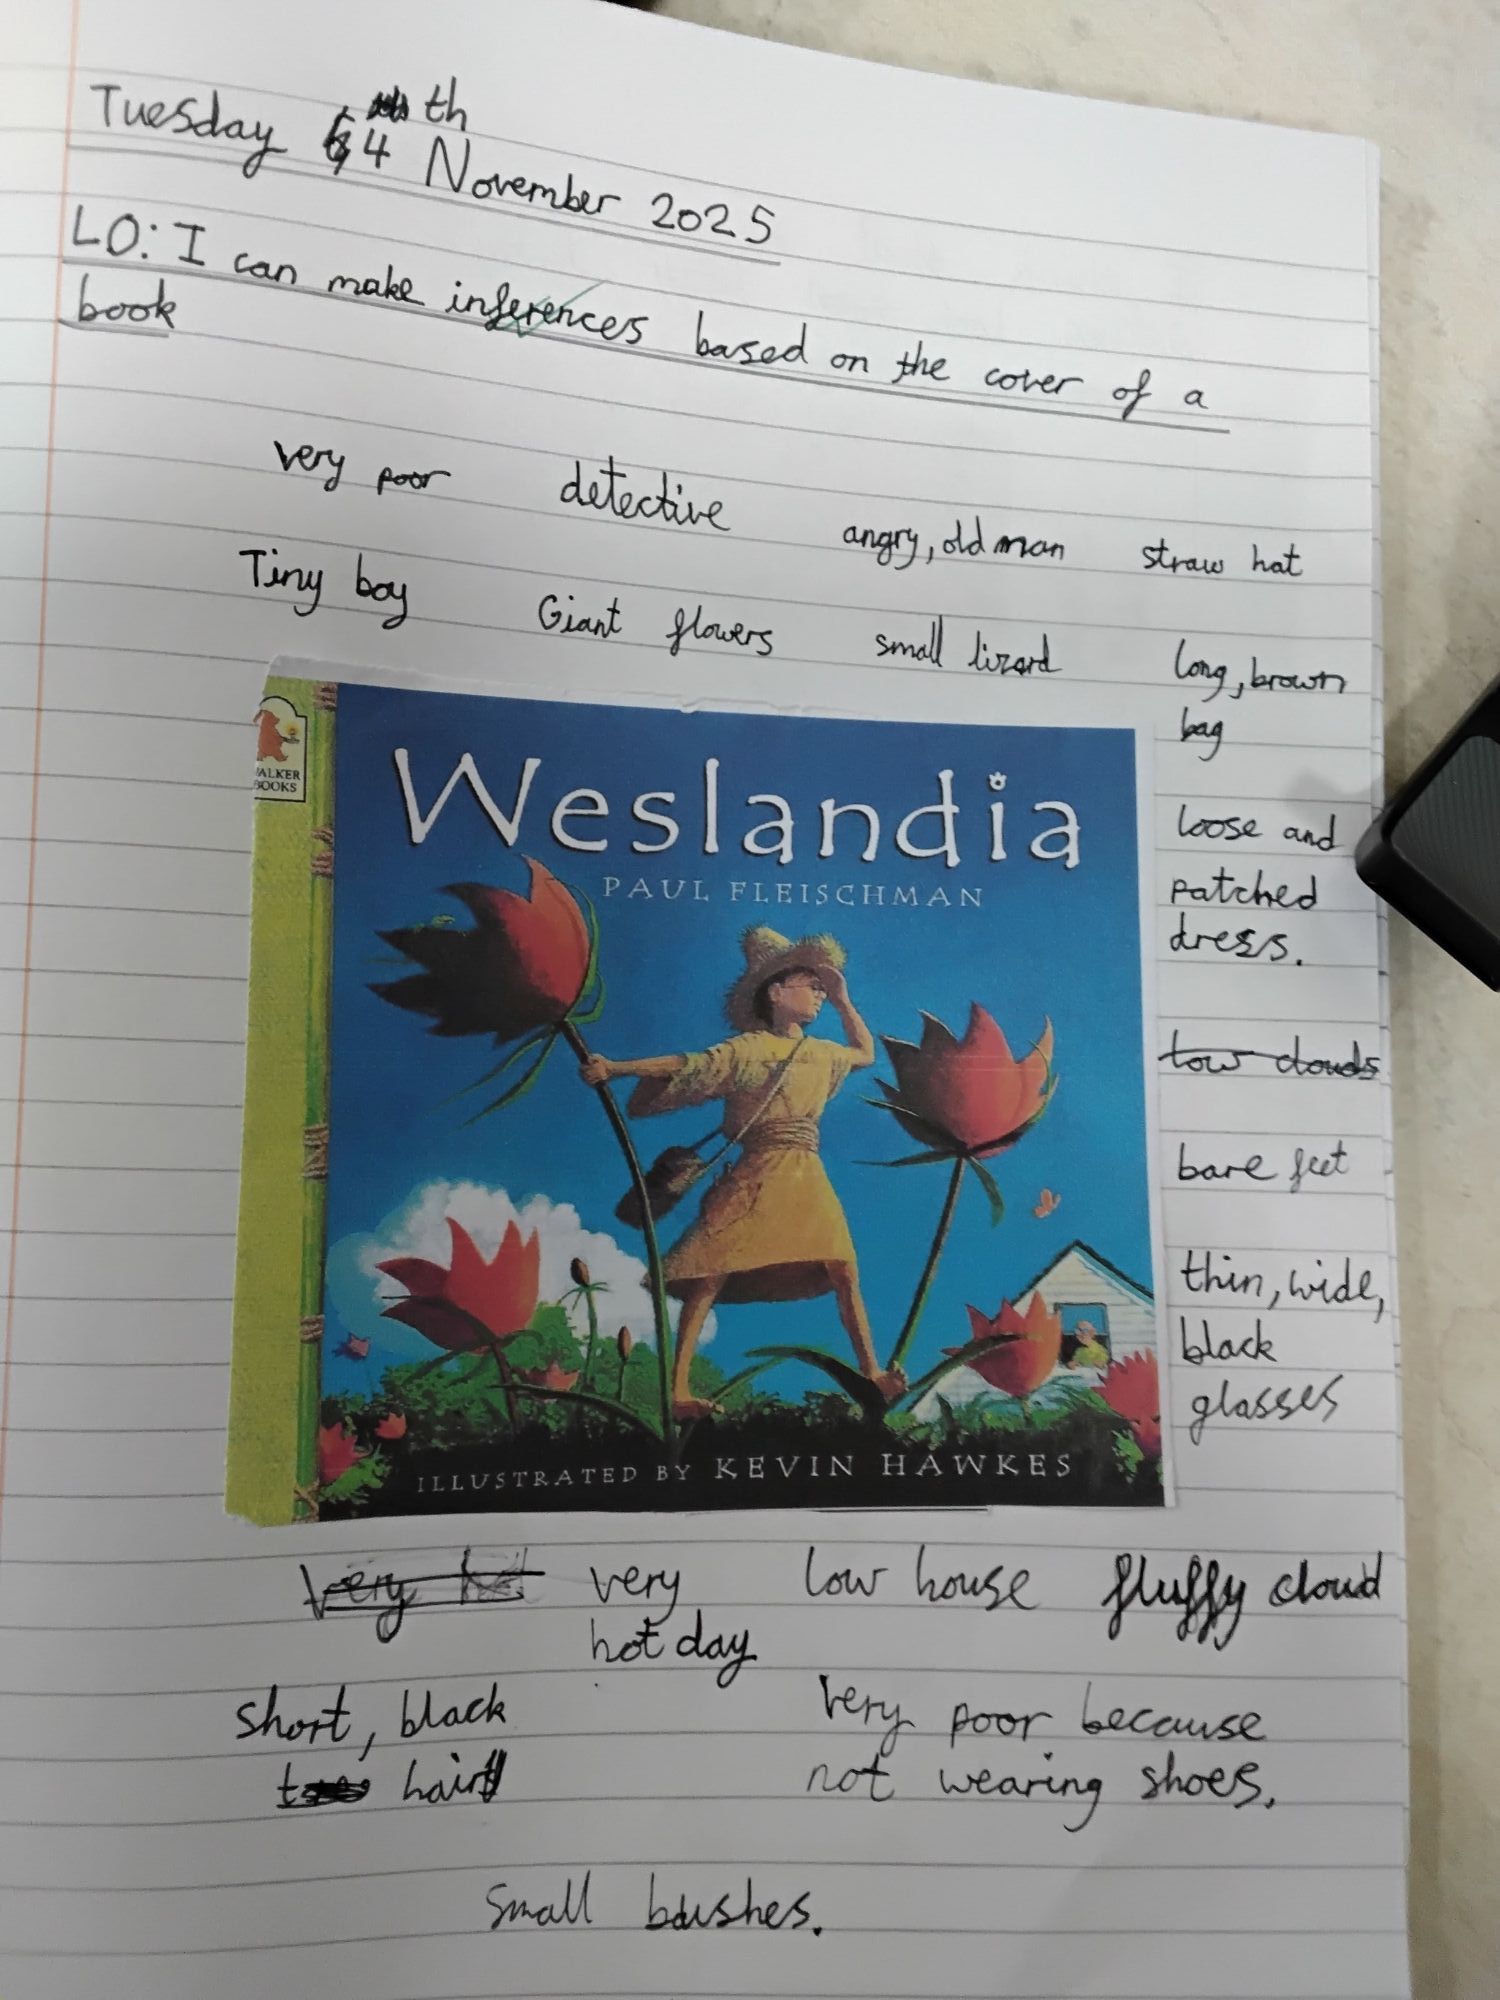 Tuesday 4th November 2025
LO: I can make inferences based on the cover of a
book
very poor detective angry, old man straw hat
Tiny boy Giant flowers small lizard long, brown
bag
WALKER
BOOKS
Weslandia
PAUL FLEISCHMAN
loose and
patched
dress.
low clouds
bare feet
thin, wide,
black
glasses
ILLUSTRATED BY KEVIN HAWKES
very low house fluffy cloud
hot day
short, black
hair
very poor because
not wearing shoes.
small bushes.